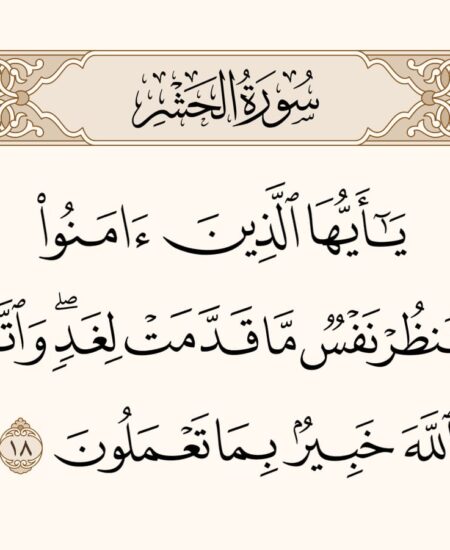 سُورَةُ الحَشْرِ
يَـٰٓأَيُّهَا ٱلَّذِينَ ءَامَنُوا۟
نَفْسٌۭ مَّا قَدَّمَتْ لِغَدٍۢ ۖ
خَبِيرٌۢ بِمَا تَعْمَلُونَ ١٨